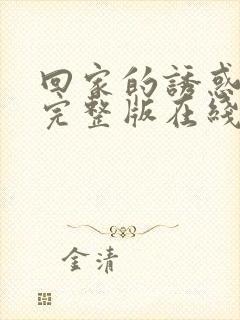 回家的誘惑
完整版在綫
金清